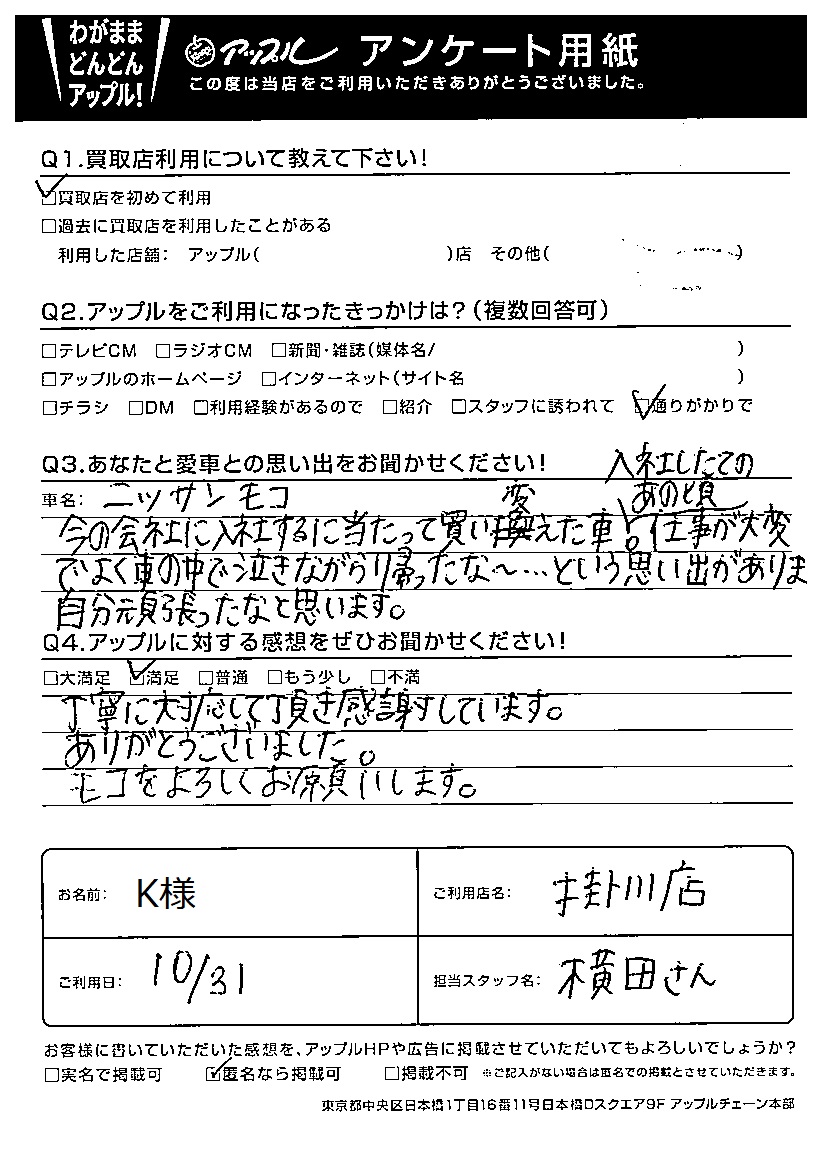 わがまま
どんどん
アップル!
アップル アンケート用紙
この度は当店をご利用いただきありがとうございました。
Q1.買取店利用について教えて下さい!
☑買取店を初めて利用
□過去に買取店を利用したことがある
利用した店舗: アップル( )店 その他( )
Q2.アップルをご利用になったきっかけは?(複数回答可)
□テレビCM □ラジオCM □新聞・雑誌(媒体名/ )
□アップルのホームページ □インターネット(サイト名 )
□チラシ □DM □利用経験があるので □紹介 □スタッフに誘われて ☑通りがかりで
Q3.あなたと愛車との思い出をお聞かせください!
入社したての
あの頃
車名: ニッサン モコ
変
今の会社に入社するに当たって買い換えた車。仕事が大変
でよく車の中で泣きながら帰ったな〜…という思い出がありま
自分頑張ったなと思います。
Q4.アップルに対する感想をぜひお聞かせください!
□大満足 ☑満足 □普通 □もう少し □不満
丁寧に対応して頂き感謝しています。
ありがとうございました。
モコをよろしくお願いします。
お名前: K様
ご利用店名: 掛川店
ご利用日: 10/31
担当スタッフ名: 横田さん
お客様に書いていただいた感想を、アップルHPや広告に掲載させていただいてもよろしいでしょうか?
□実名で掲載可 ☑匿名なら掲載可 □掲載不可 ※ご記入がない場合は匿名での掲載とさせていただきます。
東京都中央区日本橋1丁目16番11号日本橋Dスクエア9F アップルチェーン本部